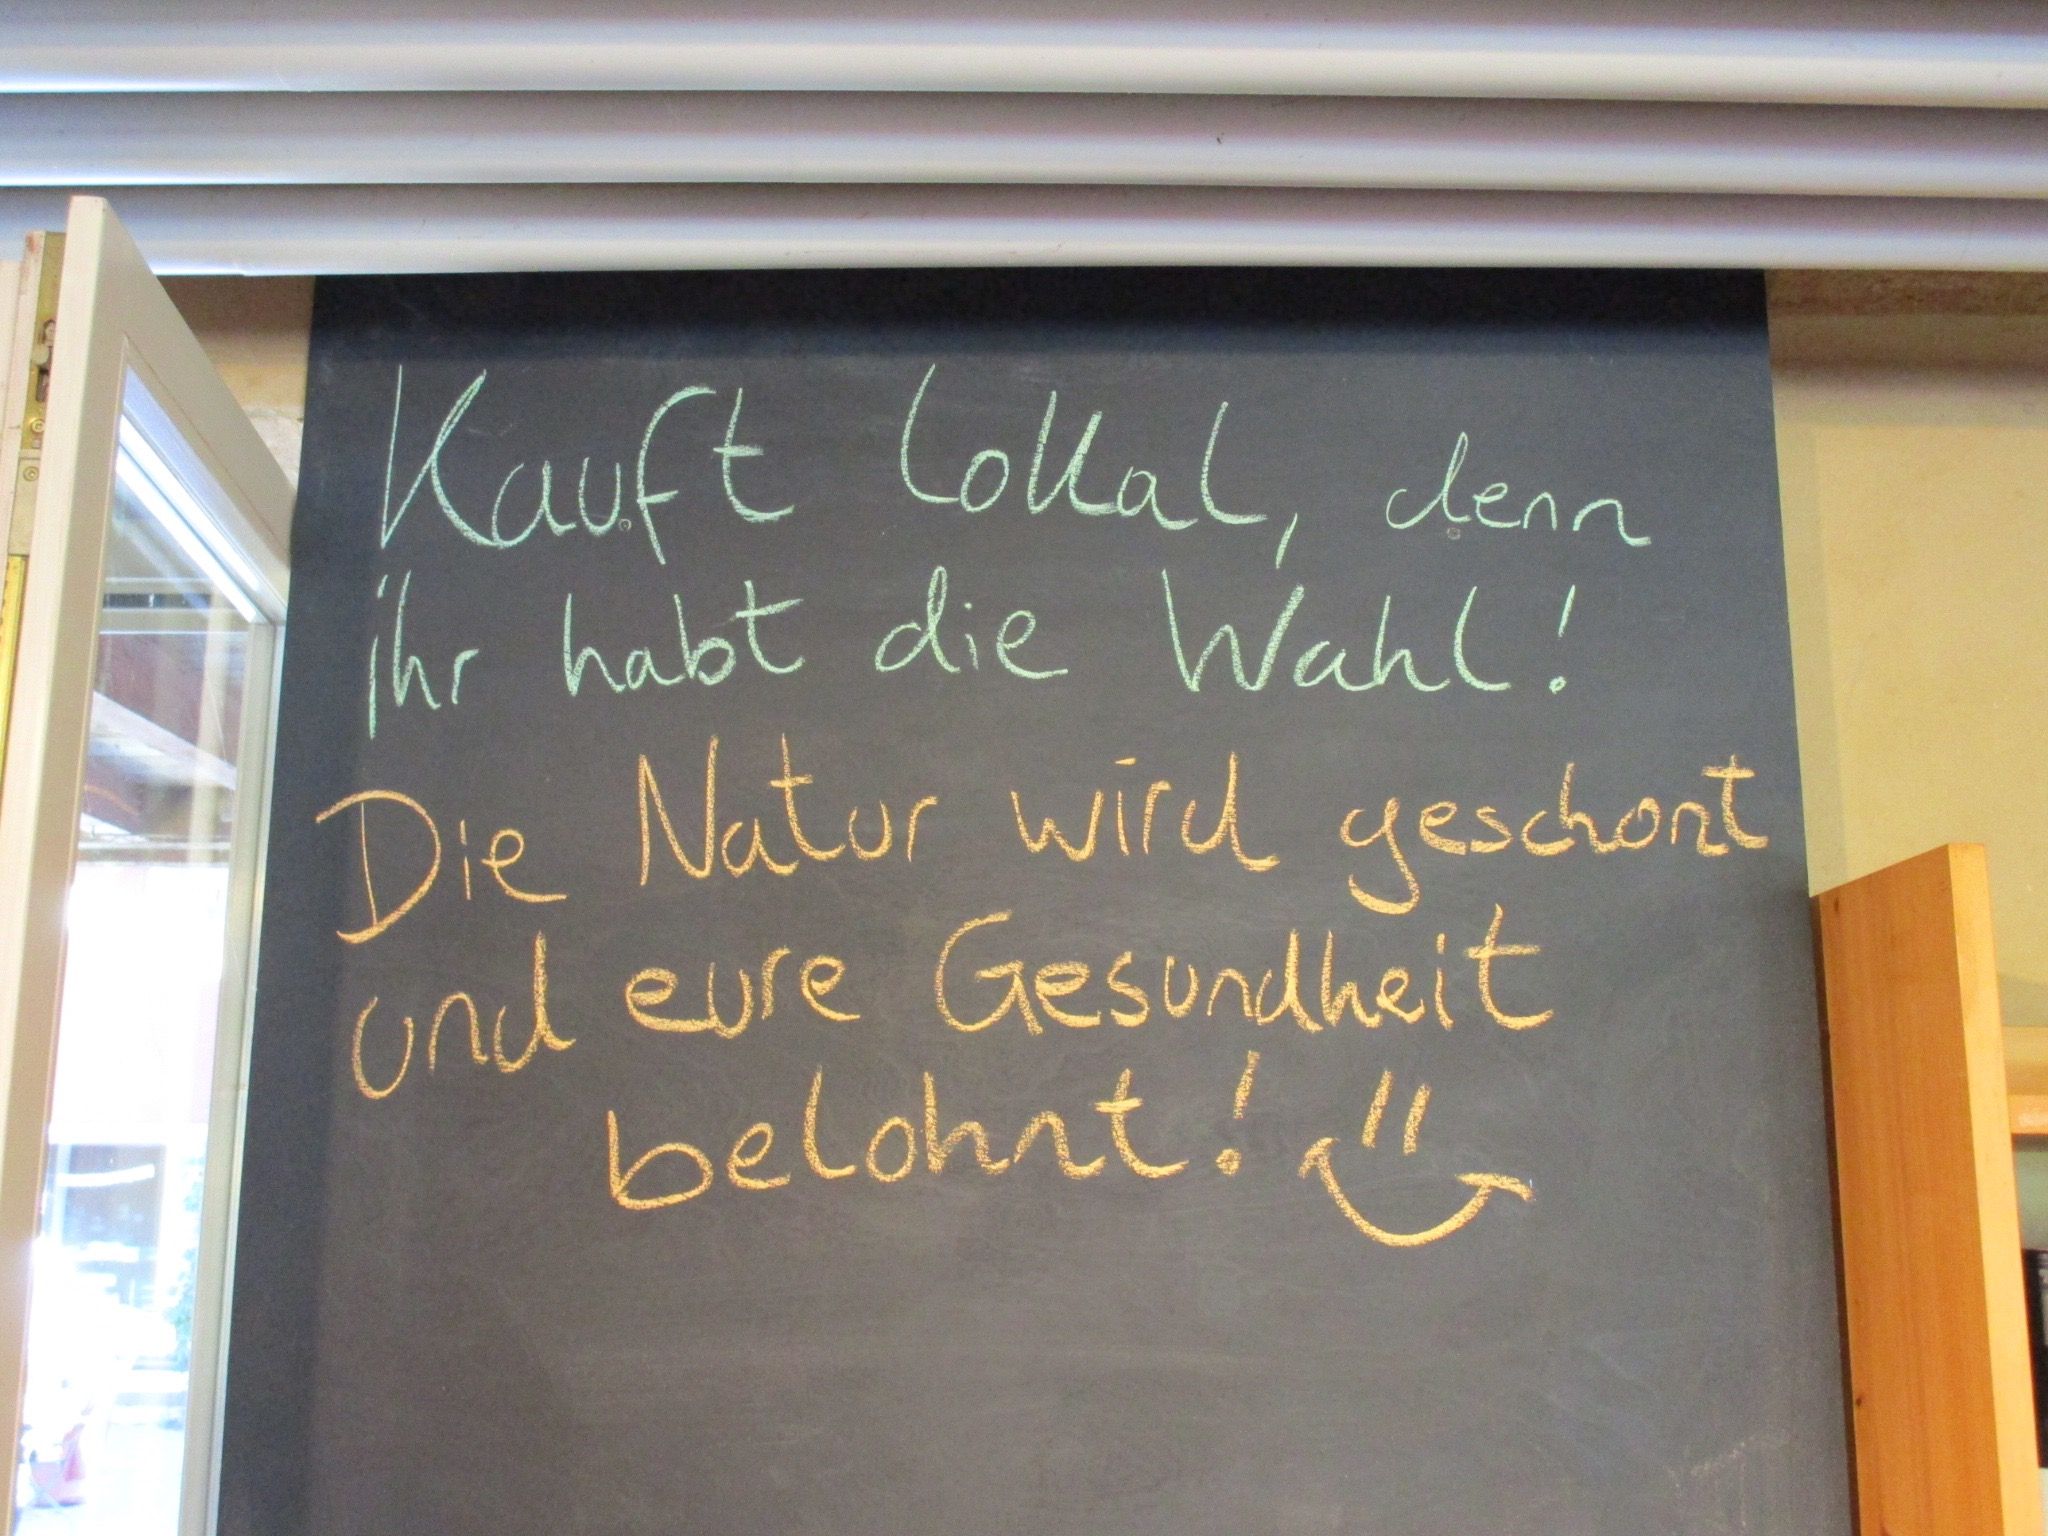 Kauft lokal, denn
ihr habt die Wahl!
Die Natur wird geschont
und eure Gesundheit
belohnt!